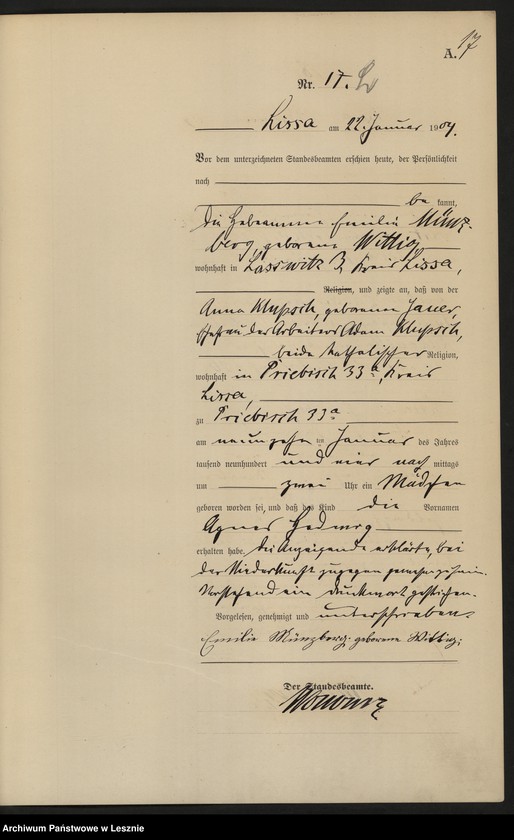 17
A.
Nr. 17.
Lissa am 22. Januar 1904.
Vor dem unterzeichneten Standesbeamten erschien heute, der Persönlichkeit
nach
be kannt,
die Hebeamme Emilie Münz-
berg, geborene Wittig,
wohnhaft in Lasswitz, Kreis Lissa,
Religion, und zeigte an, daß von der
Anna Klupsch, geborenen Jauer,
Ehefrau des Arbeiters Adam Klupsch,
beide katholischer Religion,
wohnhaft in Priebisch 33a, Kreis
Lissa,
zu Priebisch 33a
am neunzehnten Januar des Jahres
tausend neunhundert und vier nach mittags
um zwei Uhr ein Mädchen
geboren worden sei, und daß das Kind die Vornamen
Agnes Hedwig
erhalten habe. Die Anzeigende erklärte, bei
der Niederkunft zugegen gewesen zu sein.
Vorstehend ein Druckwort gestrichen.
Vorgelesen, genehmigt und unterschrieben.
Emilie Münzberg geborene Wittig.
Der Standesbeamte.
Archiwum Państwowe w Lesznie